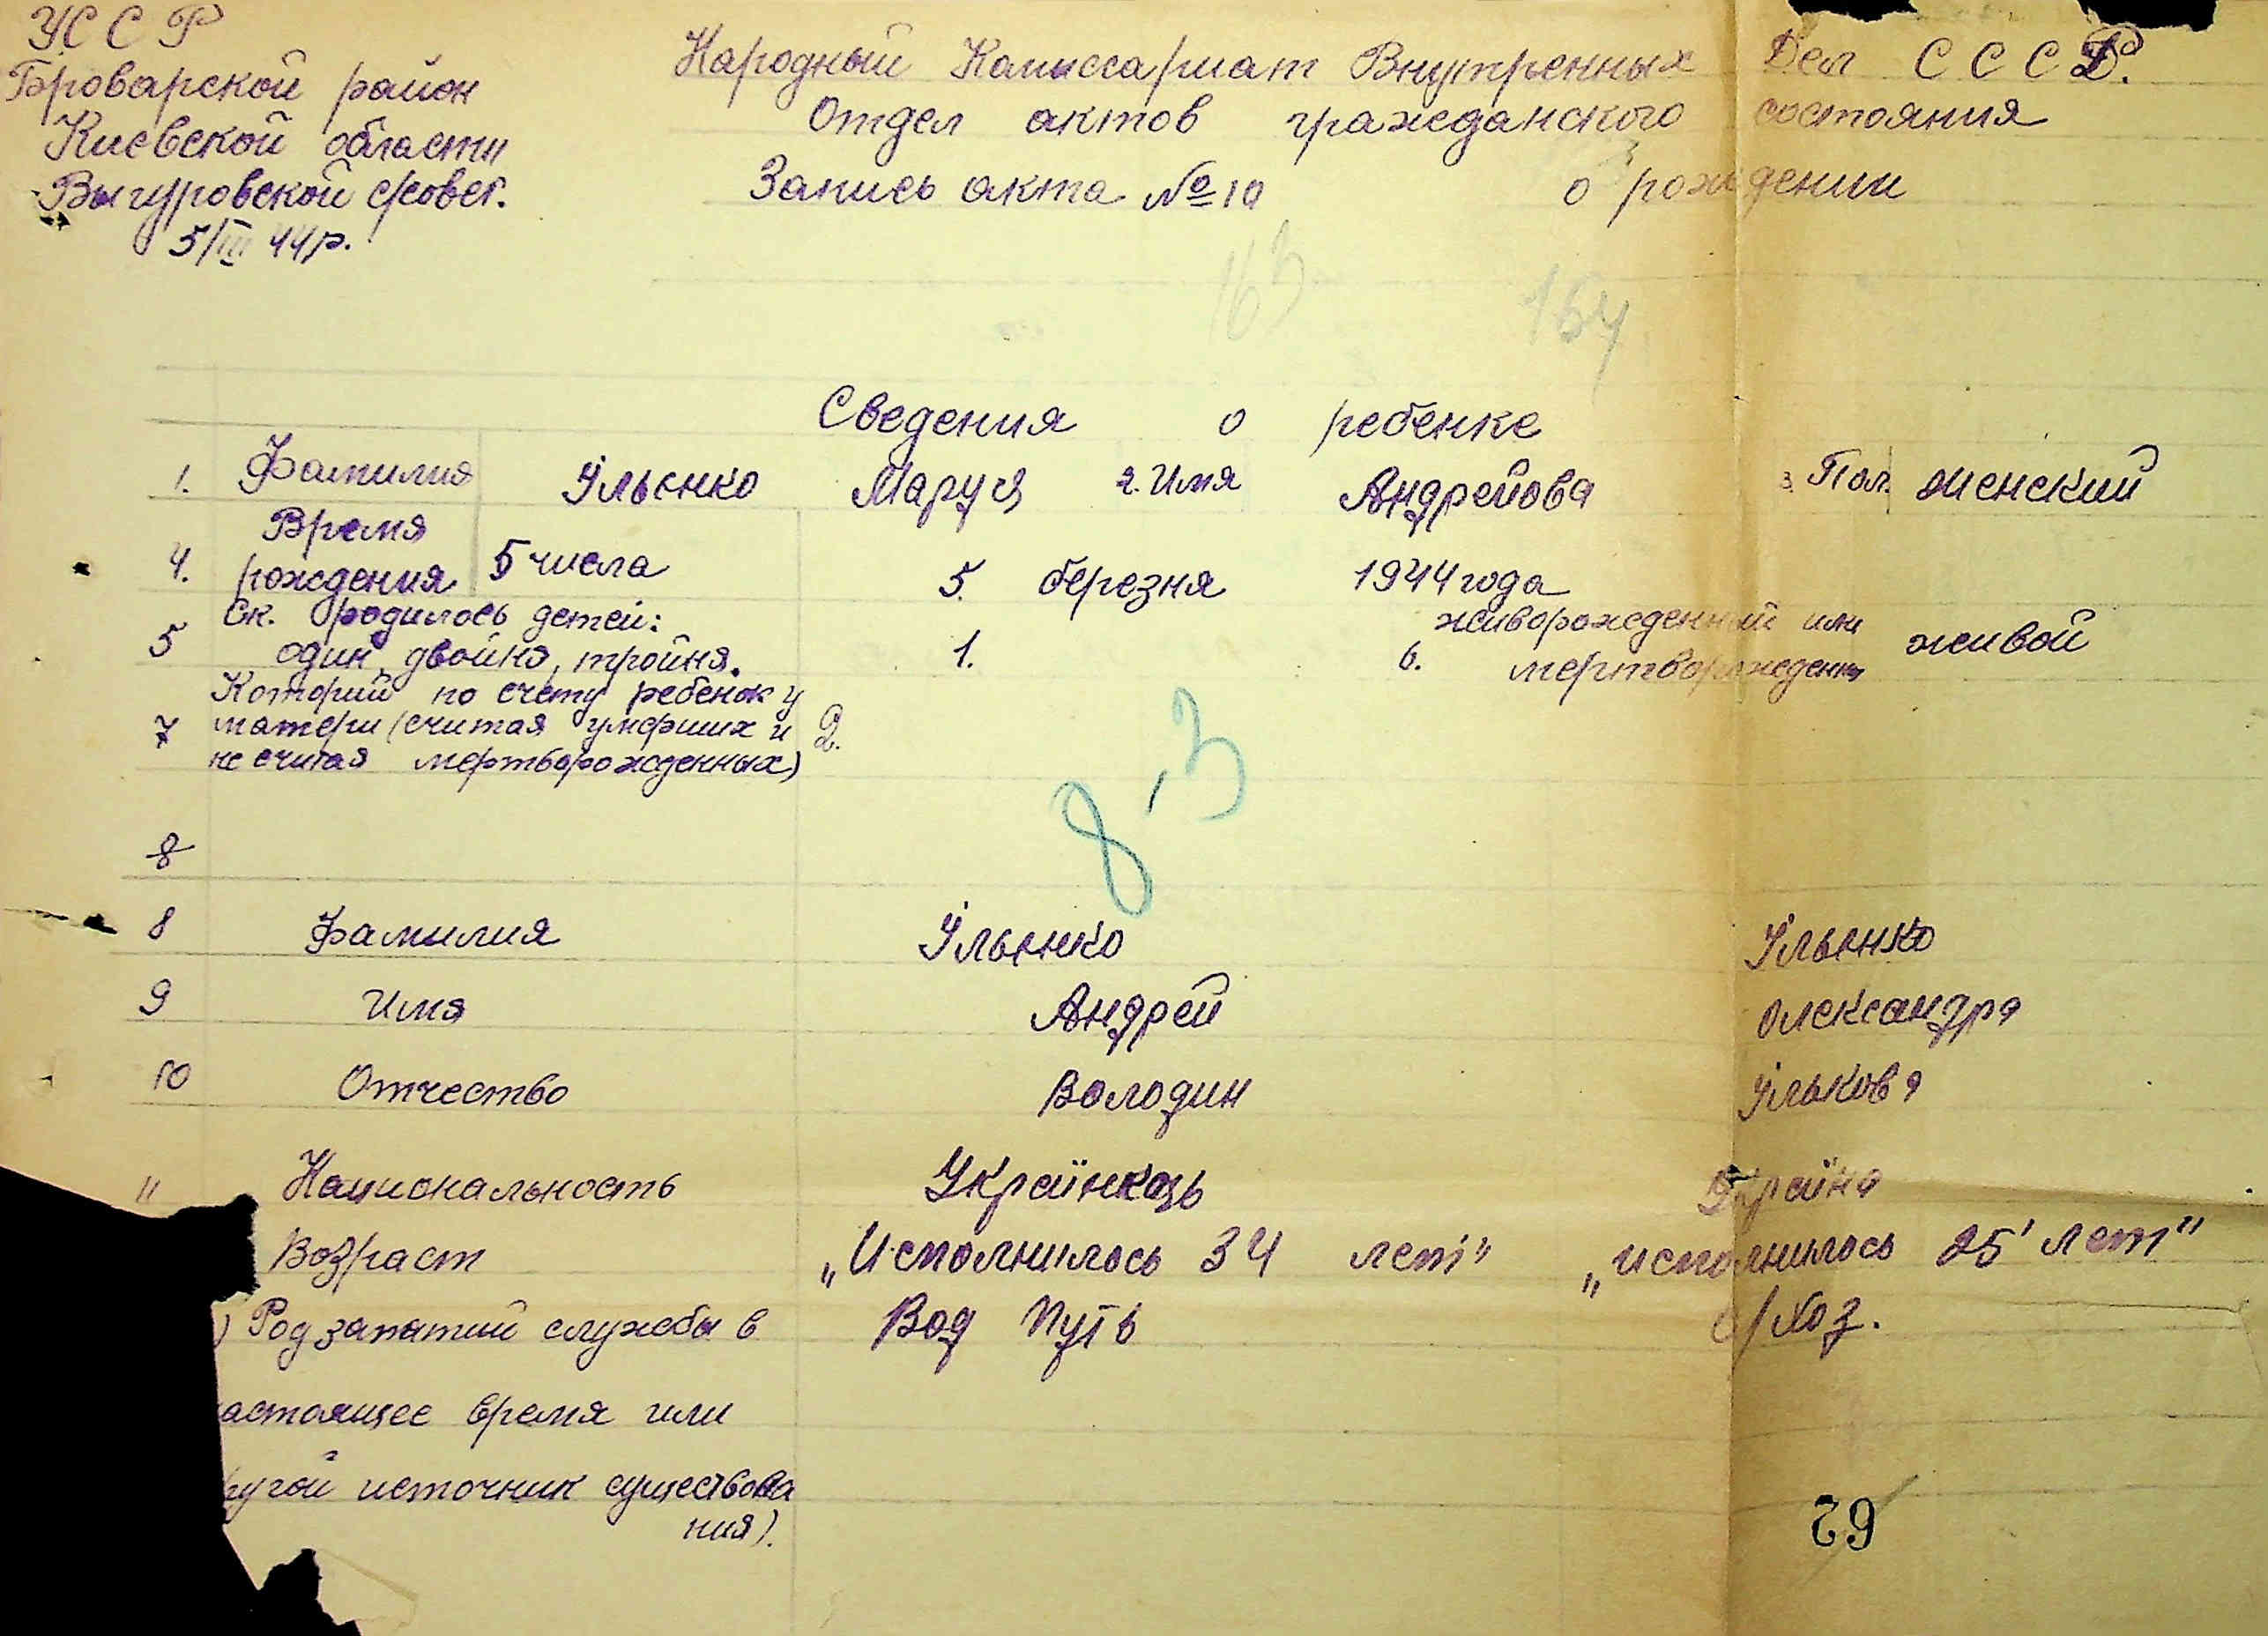 УССР
Броварской район
Киевской области
Выгуровской с/совет.
5/III 44р.
Народный Комиссариат Внутренных Дел СССР.
Отдел актов гражданского состояния
Запись акта №10 о рождении
163 164
Сведения о ребенке
1. Фамилия Ільєнко Маруся 2. Имя Андрейова 3. Пол. женский
4. Время рождения 5 числа 5. березня 1944 года
5 Ск. родилось детей: один, двойня, тройня. 1. 6. живорожденный или мертворожденны живой
7 Которий по счету ребенок у
матери (считая умерших и 2.
не считая мертворожденных)
8,3
8
8 Фамилия Ільєнко Ільєнко
9 Имя Андрей Олександра
10 Отчество Володин Ількова
11 Национальность Українець Україна
Возраст „Исполнилось 34 лет" „исполнилось 25 лет"
) Род занатий службы в Вод Путь с/хоз.
астоящее время или
ругой источник существова
ния).
62